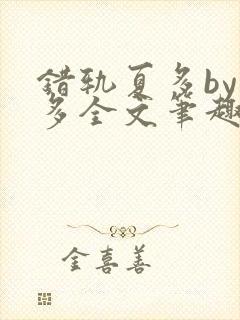 错轨夏多by
多全文笔趣
金喜善